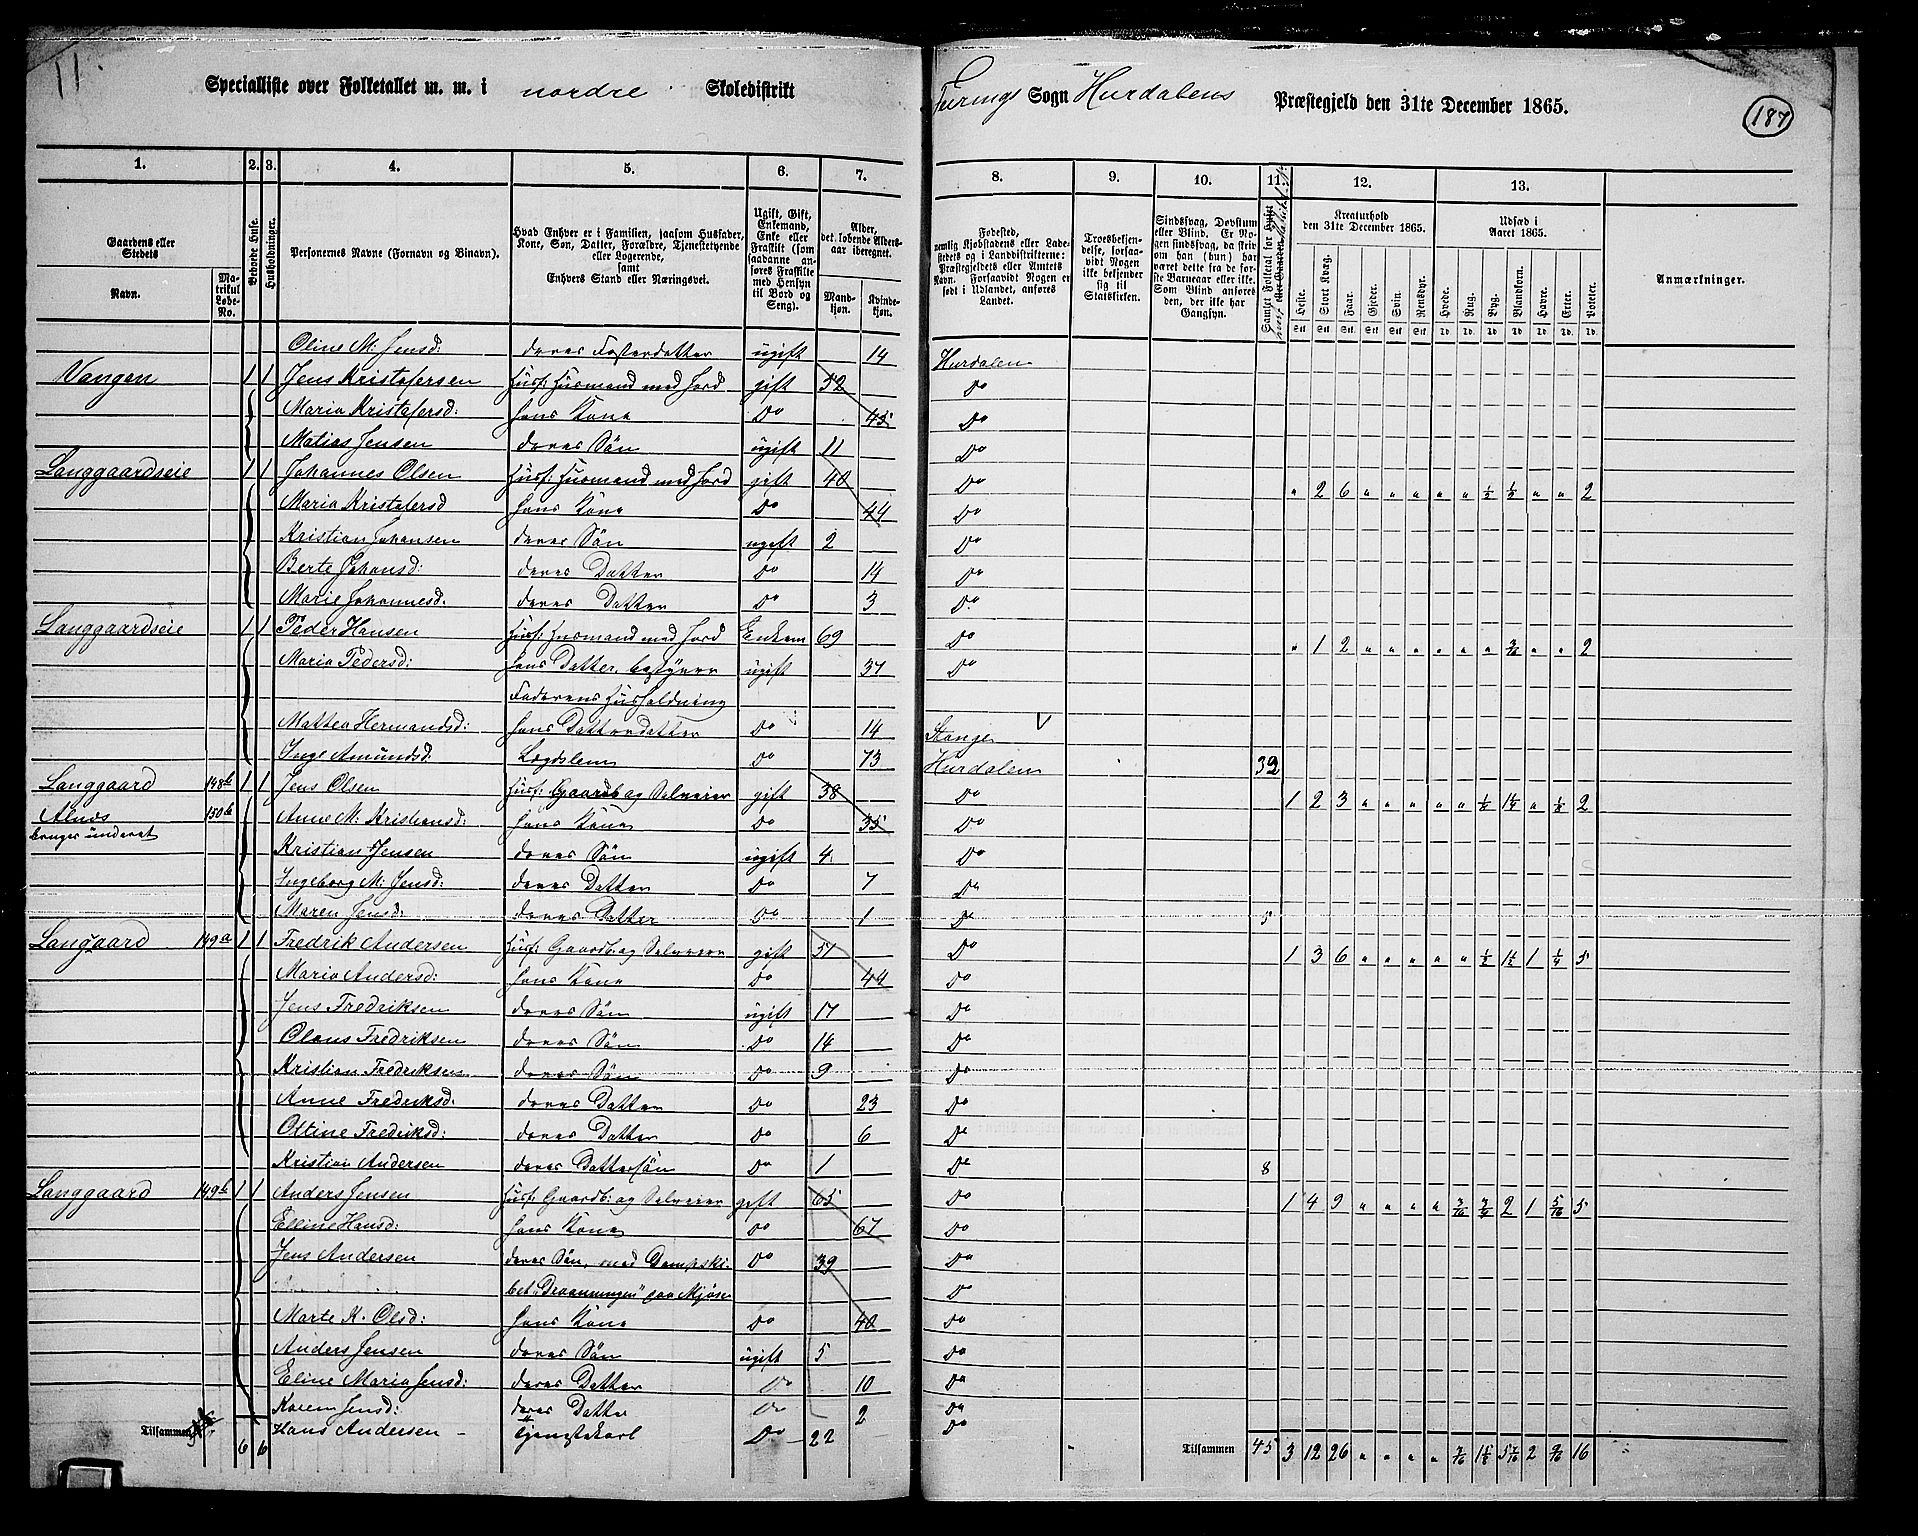 11
Specialliste over Folketallet m. m. i nordre Skoledistrikt
Sogn Hurdalens Præstegjeld den 31te December 1865.
187
1. 2. 3. 4. 5. 6. 7. 8. 9. 10. 11. 12. 13.
Gaardens eller Stedets
Navn.
Matrikul Løbe-No.
Beboede Huse.
Husholdninger.
Personernes Navne (Fornavn og Binavn).
Hvad Enhver er i Familien, saasom Husfader, Kone, Søn, Datter, Forældre, Tjenestetyende eller Logerende, samt Enhvers Stand eller Næringsvei.
Ugift, Gift, Enkemand, Enke eller Fraskilt (saadanne anføres Fraskilte med Hensyn til Bord og Seng).
Alder, det løbende Alders-aar iberegnet.
Mandkjøn. Kvindekjøn.
Fødested, nemlig Kjøbstadens eller Ladestedets og i Landdistrikterne: Præstegjeldets eller Amtets Navn. Forsaavidt Nogen er født i Udlandet, anføres Landet.
Troesbekjendelse, forsaavidt Nogen ikke bekjender sig til Statskirken.
Sindssvag, Døvstum eller Blind. Er Nogen sindssvag, da skrives om han (hun) har været dette fra de første Barneaar eller ikke. Som Blind anføres den, der ikke har Gangsyn.
Kreaturhold den 31te December 1865.
Heste. Stort Kvæg. Faar. Gjeder. Svin. Rensdyr.
Udsæd i Aaret 1865.
Hvede. Rug. Byg. Blandkorn. Havre. Erter. Poteter.
Anmærkninger.
Oline M: Jensd: deres Fosterdatter ugift 14 Hurdalen
Vangen 1 1 Jens Kristofersen Husf: Husmand med Jord gift 52 Do
Maria Kristofersd: hans Kone Do 45 Do
Matias Jensen deres Søn ugift 11 Do
Langgaardseie 1 1 Johannes Olsen Husf: Husmand med Jord gift 40 Do " 2 6 " " " " " 1/2 1/2 " " 2
Maria Kristofersd hans Kone Do 44 Do
Kristian Johansen deres Søn ugift 2 Do
Berte Johansd: deres Datter Do 14 Do
Marie Johannesd. deres Datter Do 3 Do
Langgaardseie 1 1 Peder Hansen Husf: Husmand med Jord Enkem 69 Do " 1 2 " " " " " " " " 2
Maria Pedersd: hans Datter, bestyrer ugift 37 Do
Faderens Husholdning
Mattea Hermandsd: hans Datterdatter Do 14 Stange V
Inge Amundsd: Lægdslem Do 73 Hurdalen 32
Langgaard 148b 1 1 Jens Olsen Husf: Gaardb: og Selveier gift 38 Do 1 2 3 " " " " " 1/2 " 2
Alnes 150b Anne M: Kristiansd: hans Kone Do 35 Do
bruges underet Kristian Jensen deres Søn ugift 4 Do
Ingeborg M: Jensd: deres Datter Do 7 Do
Maren Jensd: deres Datter Do 1 Do 5
Langgaard 149a 1 1 Fredrik Andersen Husf: Gaardb: og Selveier gift 51 Do 1 3 6 " " " " " 1/2 1 1/4 5
Maria Andersd: hans Kone Do 44 Do
Jens Fredriksen deres Søn ugift 17 Do
Olaus Fredriksen deres Søn Do 14 Do
Kristian Fredriksen deres Søn Do 9 Do
Anne Fredriksd. deres Datter Do 23 Do
Oltine Fredriksd: deres Datter Do 6 Do
Kristian Andersen deres Dattersøn Do 1 Do 8
Langgaard 149b 1 1 Anders Jensen Husf: Gaardb: og Selveier gift 65 Do 1 4 9 " " " " 2 1 5
Elline Hansd: hans Kone Do 67 Do
Jens Andersen deres Søn, med Dampski- Do 39 Do
bet "Dronningen" paa Mjøsen Do
Marte K. Olsd: hans Kone Do 40 Do
Anders Jensen deres Søn ugift 5 Do
Eline Maria Jensd: deres Datter Do 10 Do
Karen Jensd: deres Datter Do 2 Do
Hans Andersen Tjenestekarl Do 22 Do
Tilsammen 6 6
Tilsammen 45 3 12 26 " " " " 2 16